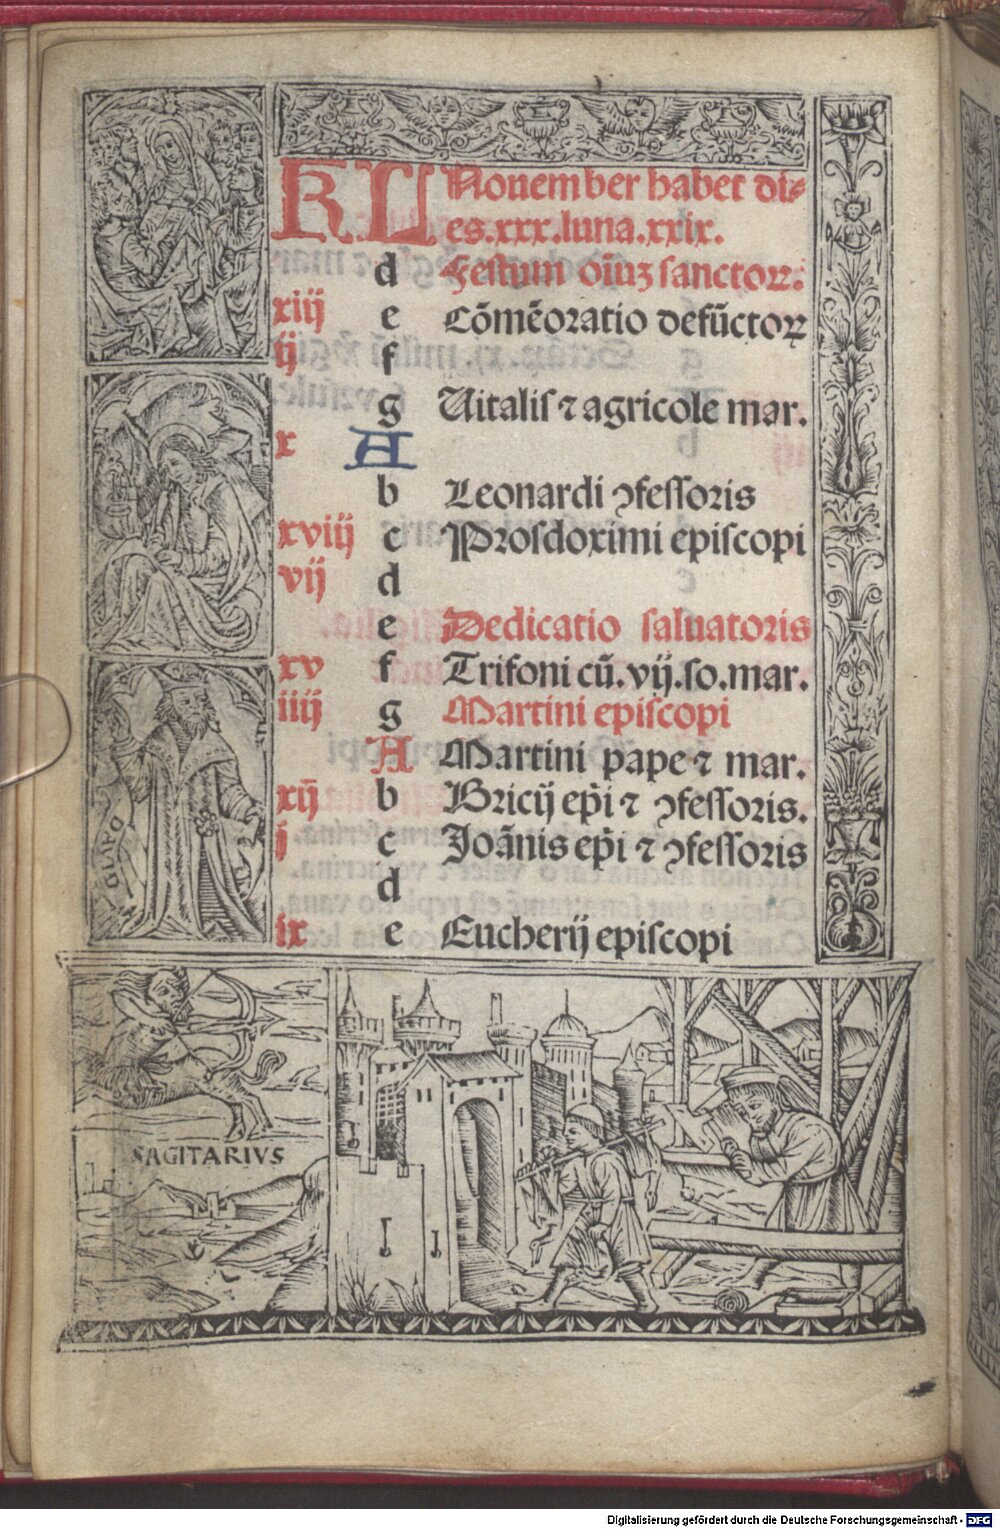 KL Nouember habet di-
es.xxx.luna.xxix.
d Festum oīuꝫ sanctoꝝ:
xiij e Cōmēoratio defūctoꝝ
ij f
g Uitalis ⁊ agricole mar.
x A
b Leonardi ↄfessoris
xviij c Prosdoximi episcopi
vij d
e Dedicatio saluatoris
xv f Trifoni cū.vij.so.mar.
iiij g Martini episcopi
A Martini pape ⁊ mar.
xij b Bricij ep̄i ⁊ ↄfessoris.
j c Joānis ep̄i ⁊ ↄfessoris
d
ix e Eucherij episcopi
DAVID
SAGITARIVS
Digitalisierung gefördert durch die Deutsche Forschungsgemeinschaft - DFG